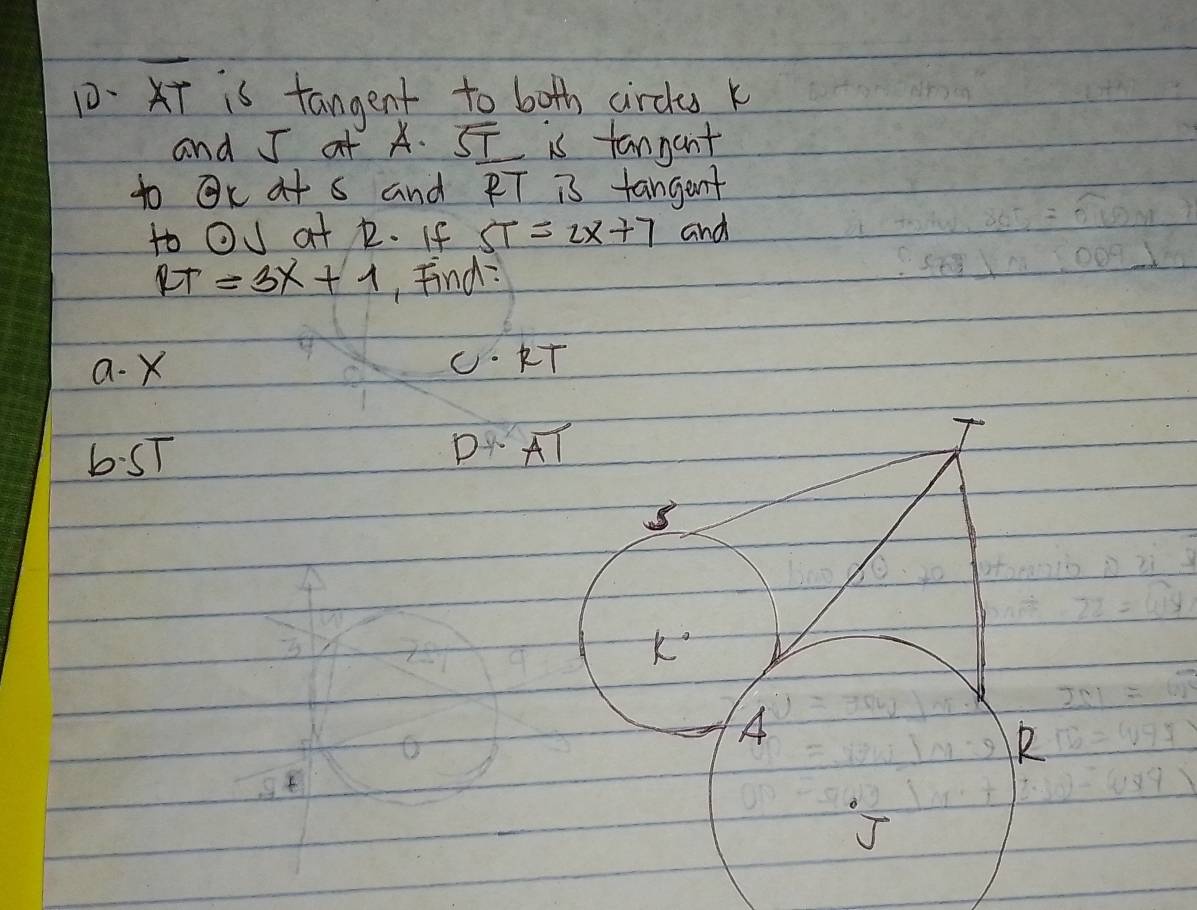 10. AT is tangent to both circles K
and J at A. ST is tangent
to ⊙K at S and RT is tangent
to ⊙J at R. If ST = 2X+7 and
RT = 3X + 1, Find:
a. X
C. RT
b. ST
D. AT
T
S
K
A
R
J